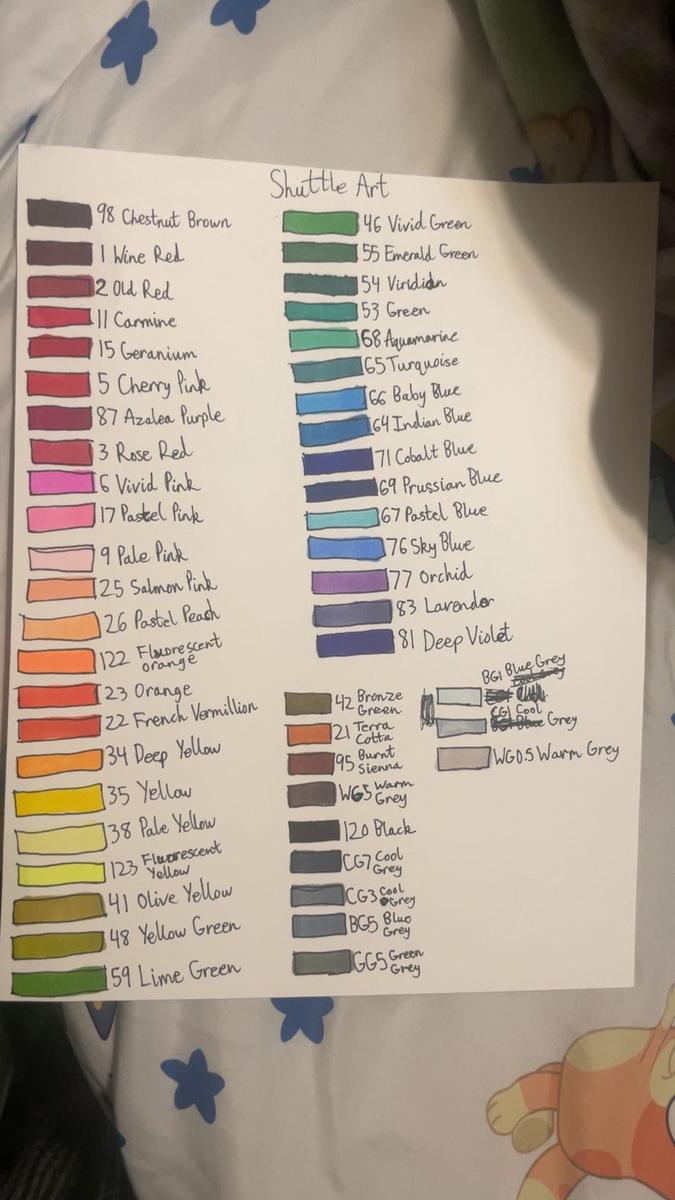 Shuttle Art
98 Chestnut Brown
1 Wine Red
2 Old Red
11 Carmine
15 Geranium
5 Cherry Pink
87 Azalea Purple
3 Rose Red
6 Vivid Pink
17 Pastel Pink
9 Pale Pink
25 Salmon Pink
26 Pastel Peach
122 Fluorescent
orange
23 Orange
22 French Vermillion
34 Deep Yellow
35 Yellow
38 Pale Yellow
123 Fluorescent
Yellow
41 Olive Yellow
48 Yellow Green
59 Lime Green
46 Vivid Green
55 Emerald Green
54 Viridian
53 Green
68 Aquamarine
65 Turquoise
66 Baby Blue
64 Indian Blue
71 Cobalt Blue
69 Prussian Blue
67 Pastel Blue
76 Sky Blue
77 Orchid
83 Lavender
81 Deep Violet
42 Bronze
Green
21 Terra
Cotta
95 Burnt
Sienna
WG5 Warm
Grey
120 Black
CG7 Cool
Grey
CG3 Cool
Grey
BG5 Blue
Grey
GG5 Green
Grey
BG1 Blue Grey
CG1 Cool
Grey
WG0.5 Warm Grey